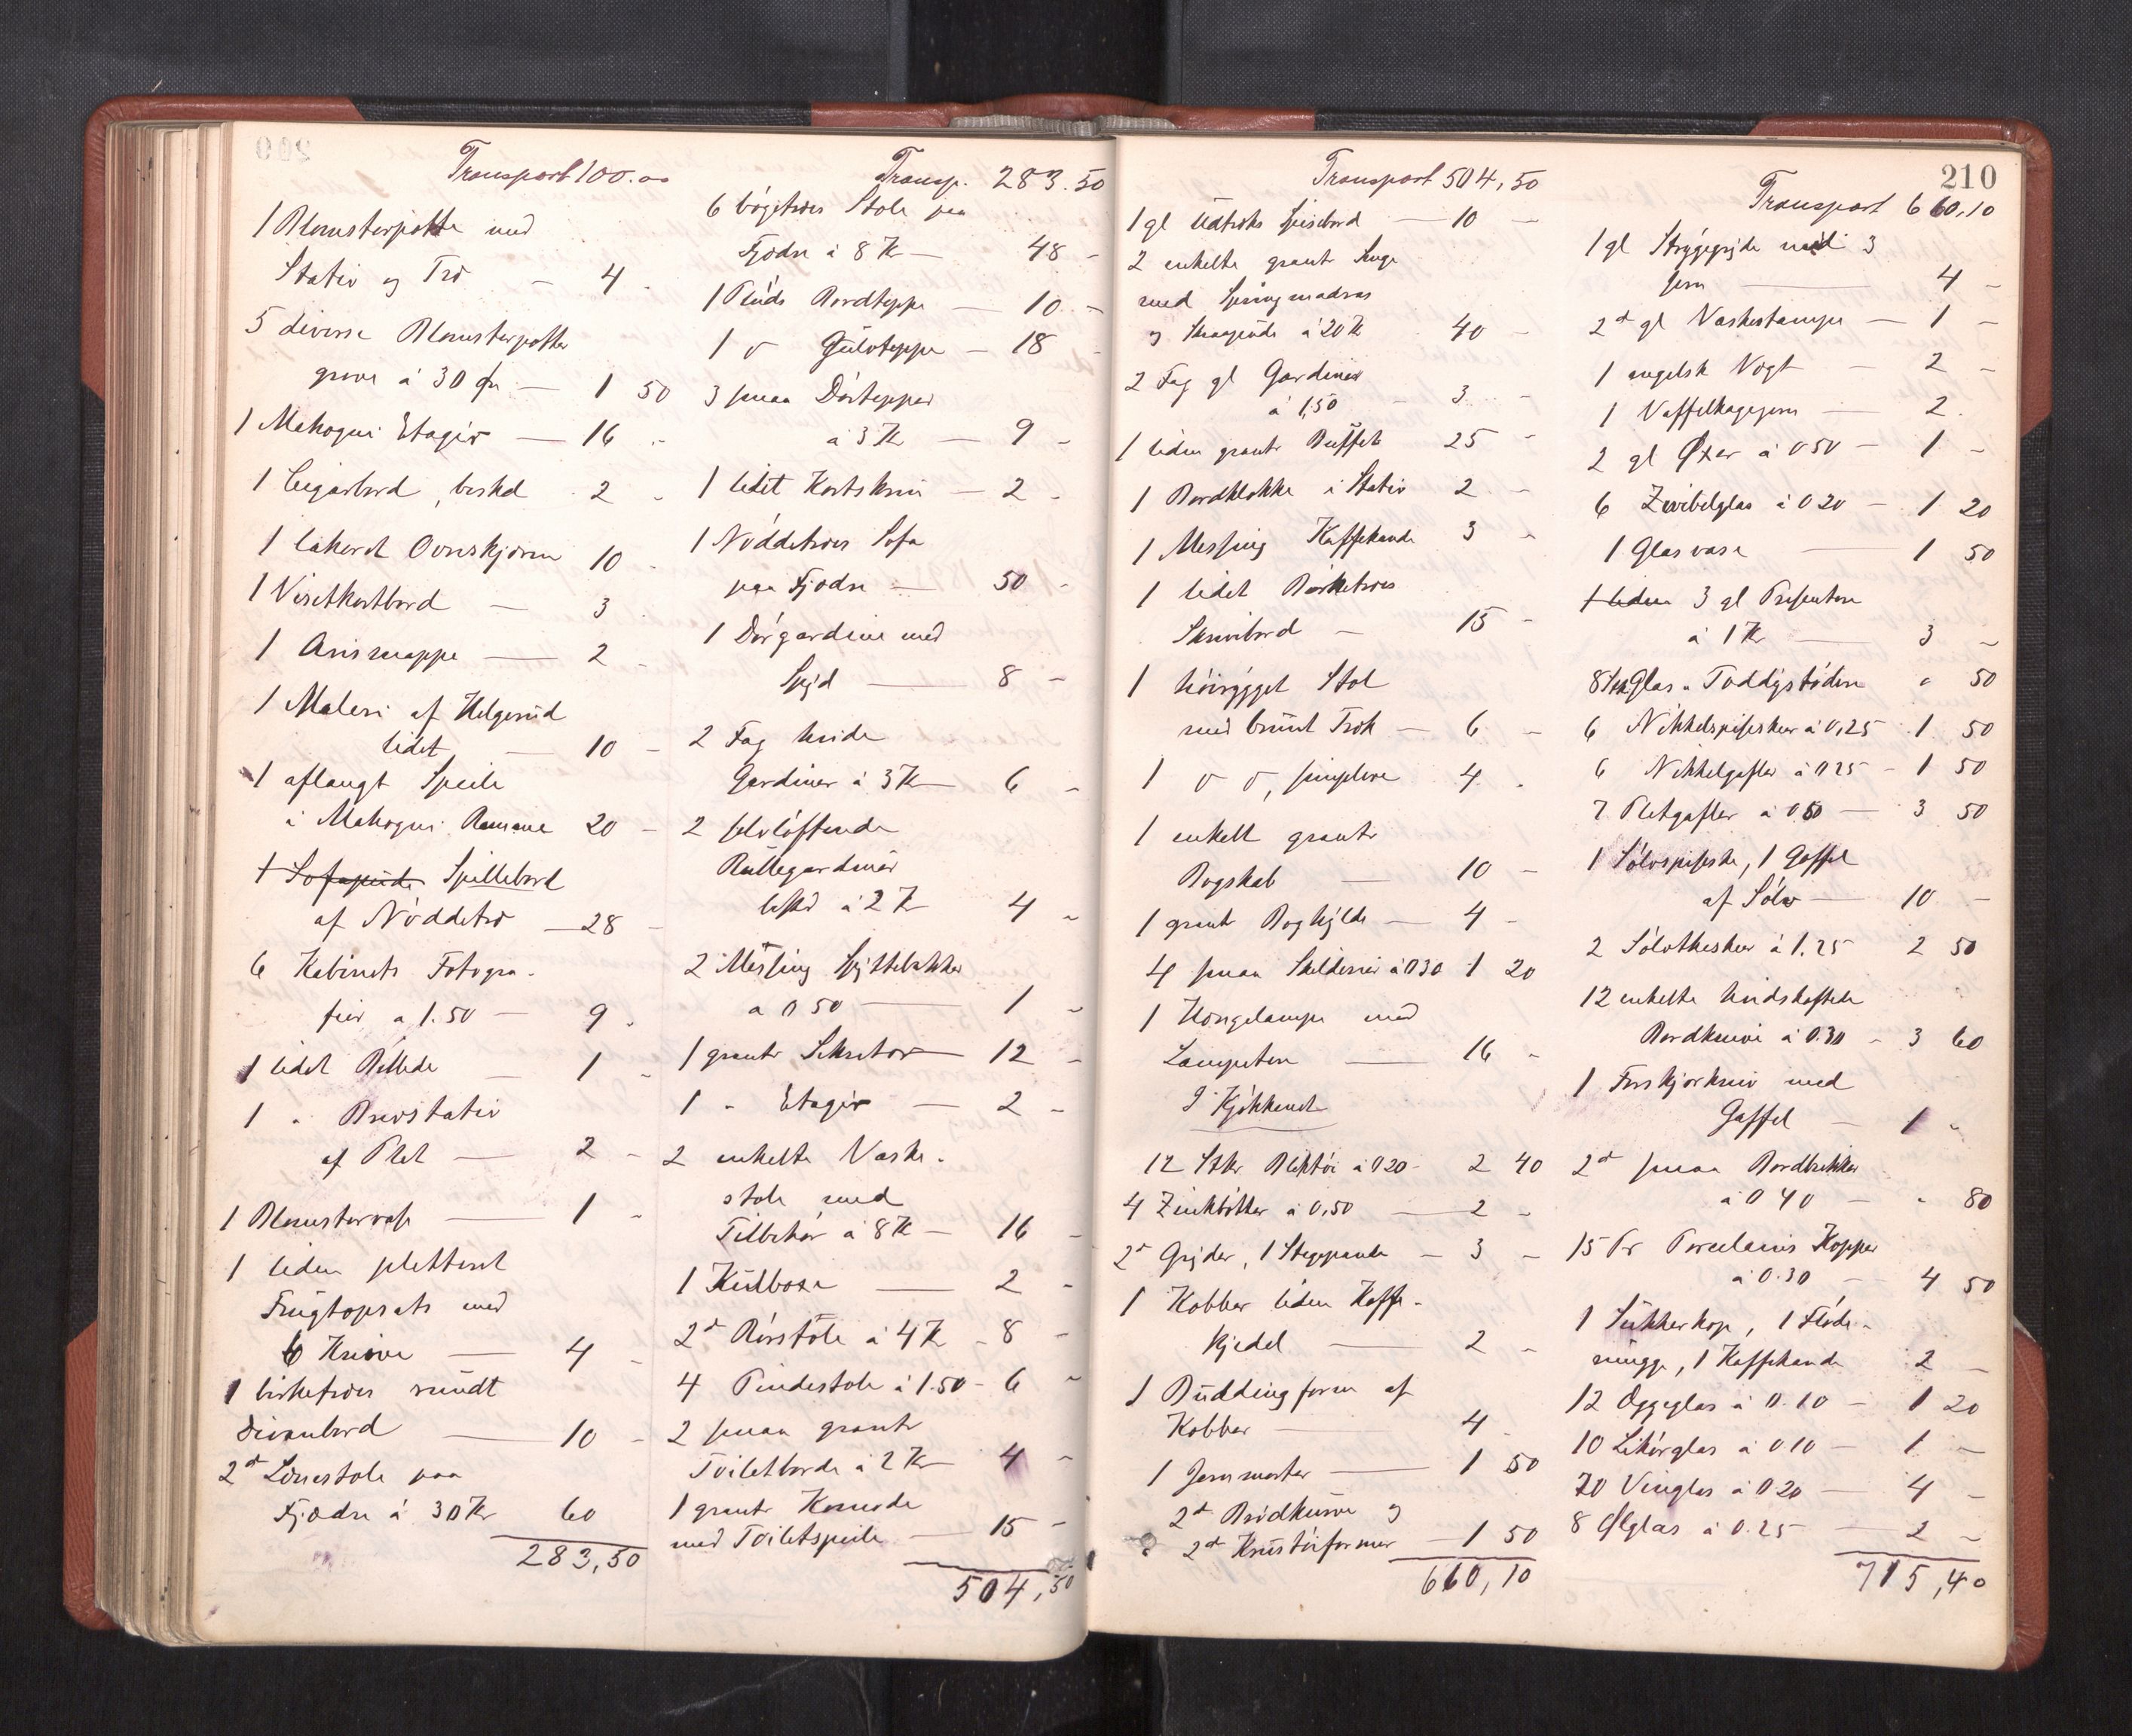 Transport 100.00
1 Blomsterpotte med
Stativ og Træ - 4 -
5 diverse Blomsterpotter
grova á 30 Øre - 1 50
1 Mahogni Etagér - 16 -
1 Cigarbord, beskd - 2 -
1 lakeret Ovnskjærm 10 -
1 Visitkortbord - 3 -
1 Avismappe - 2 -
1 Maleri af Helgerud
lidet - 10 -
1 aflangt Speile
i Mahogni Ramme 20 -
1 Sofapude Spillebord
af Nøddetræ - 28 -
6 Kabinets Fotogra-
fier a 1.50 - 9 -
1 lidet Billede - 1 -
1 " Brevstativ
af Plet - 2 -
1 Blomstervase - 1 -
1 liden pletteret
Frugtopsats med
6 Knive - 4 -
1 birketræes rundt
Divanbord - 10 -
2 Lænestole paa
Fjædre á 30 Kr 60
283,50
Transp. 283.50
6 bøgetræes Stole paa
Fjødre á 8 Kr - 48 -
1 Pluds Bordteppe - 10 -
1 d Gulvteppe - 18 -
3 smaa Dørtepper
á 3 Kr - 9 -
1 lidet Kortskrin - 2 -
1 Nøddetræes Sofa
paa Fjødre - 50 -
1 Dørgardine med
Spyd - 8 -
2 Fag hvide
Gardiner á 3 Kr - 6 -
2 selvløftende
Rullegardiner
beskd á 2 Kr 4 -
2 Messing Spyttebakker
a 0 50 - 1 -
1 grants Sekretær - 12 -
1 " Etagér - 2 -
2 enkelte Vaske-
stole med
Tilbehør á 8 Kr - 16 -
1 Kulboxe - 2 -
2 Rørstole á 4 Kr - 8 -
4 Pindestole á 1.50 - 6 -
2 smaa grants
Toiletborde á 2 Kr 4 -
1 grants Komode
med Toiletspeile - 15 -
504,50
210
Transport 504,50
1 gl Udtræks Spisebord - 10 -
2 enkelte grants Senge
med Springmadras
og Skraapude á 20 Kr 40 -
2 Fag gl Gardiner
á 1,50 - 3 -
1 liden grants Buffet 25 -
1 Bordklokke i Stativ 2 -
1 Messing Kaffekande 3 -
1 lidet Birketræes
Skrivebord - 15 -
1 høirygget Stol
med brunt Træk - 6 -
1 d d, simplere 4 -
1 enkelt grants
Bogskab - 10 -
1 grants Boghylde - 4 -
4 smaa Skilderier á 0 30 1 20
1 Hængelampe med
Lampetter - 16 -
I Kjøkkenet
12 Stkr Bliktøi á 0 20 - 2 40
4 Zinkbøtter á 0,50 - 2 -
2 Gryder, 1 Stegepande - 3 -
1 Kobber liden Kaffe-
kjedel - 2 -
1 Buddingform af
Kobber - 4
1 Jernmorter - 1 50
2 Brødkurve og
2 Krustøiformer - 1 50
660,10
Transport 660,10
1 gl Strygegryde med 3
Jern - 4 -
2 gl Vaskestampe - 1 -
1 engelsk Vægt - 2 -
1 Vaffelkagejern - 2 -
2 gl Øxer á 0 50 - 1 -
6 Zwibelglas á 0 20 - 1 20
1 Glasvase - 1 50
1 liden 3 gl Presentere
á 1 Kr - 3 -
8 Stk Glas- Toddystødere " 50
6 Nikkelspiseskeer á 0,25 1 50
6 Nikkelgafler á 0 25 - 1 50
7 Pletgafler á 0.50 - 3 50
1 Sølvspiseske, 1 Gaffel
af Sølv - 10 -
2 Sølvtheskeer á 1.25 2 50
12 enkelte hvidskaftede
Bordknive á 0.30 - 3 60
1 Forskjærkniv med
Gaffel - 1 -
2 smaa Bordbakker
á 0 40 - " 80
15 Pr Porcelains Kopper
á 0.30 - 4 50
1 Sukkerkop, 1 Fløde-
mugge, 1 Kaffekande 2 -
12 Æggeglas á 0.10 - 1 20
10 Likørglas á 0.10 - 1 -
20 Vinglas á 0 20 - 4 -
8 Ølglas á 0.25 - 2 -
715,40